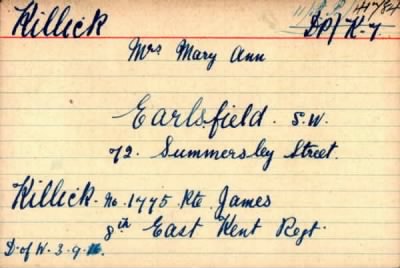 Killick DP/K-7.
Mrs Mary Ann
Earlsfield. S.W.
72. Summersley Street.
Killick. No. 1775. Pte. James
8th East Kent Regt.
D. of W. 3.9.16.